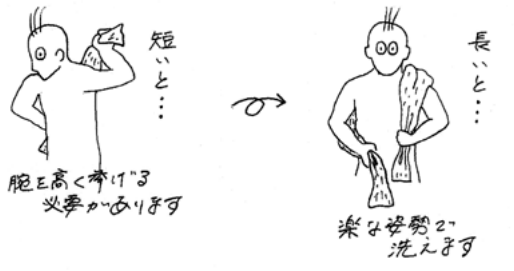 短いと・・・
腕を高く挙げる
必要があります
長いと・・・
楽な姿勢で
洗えます